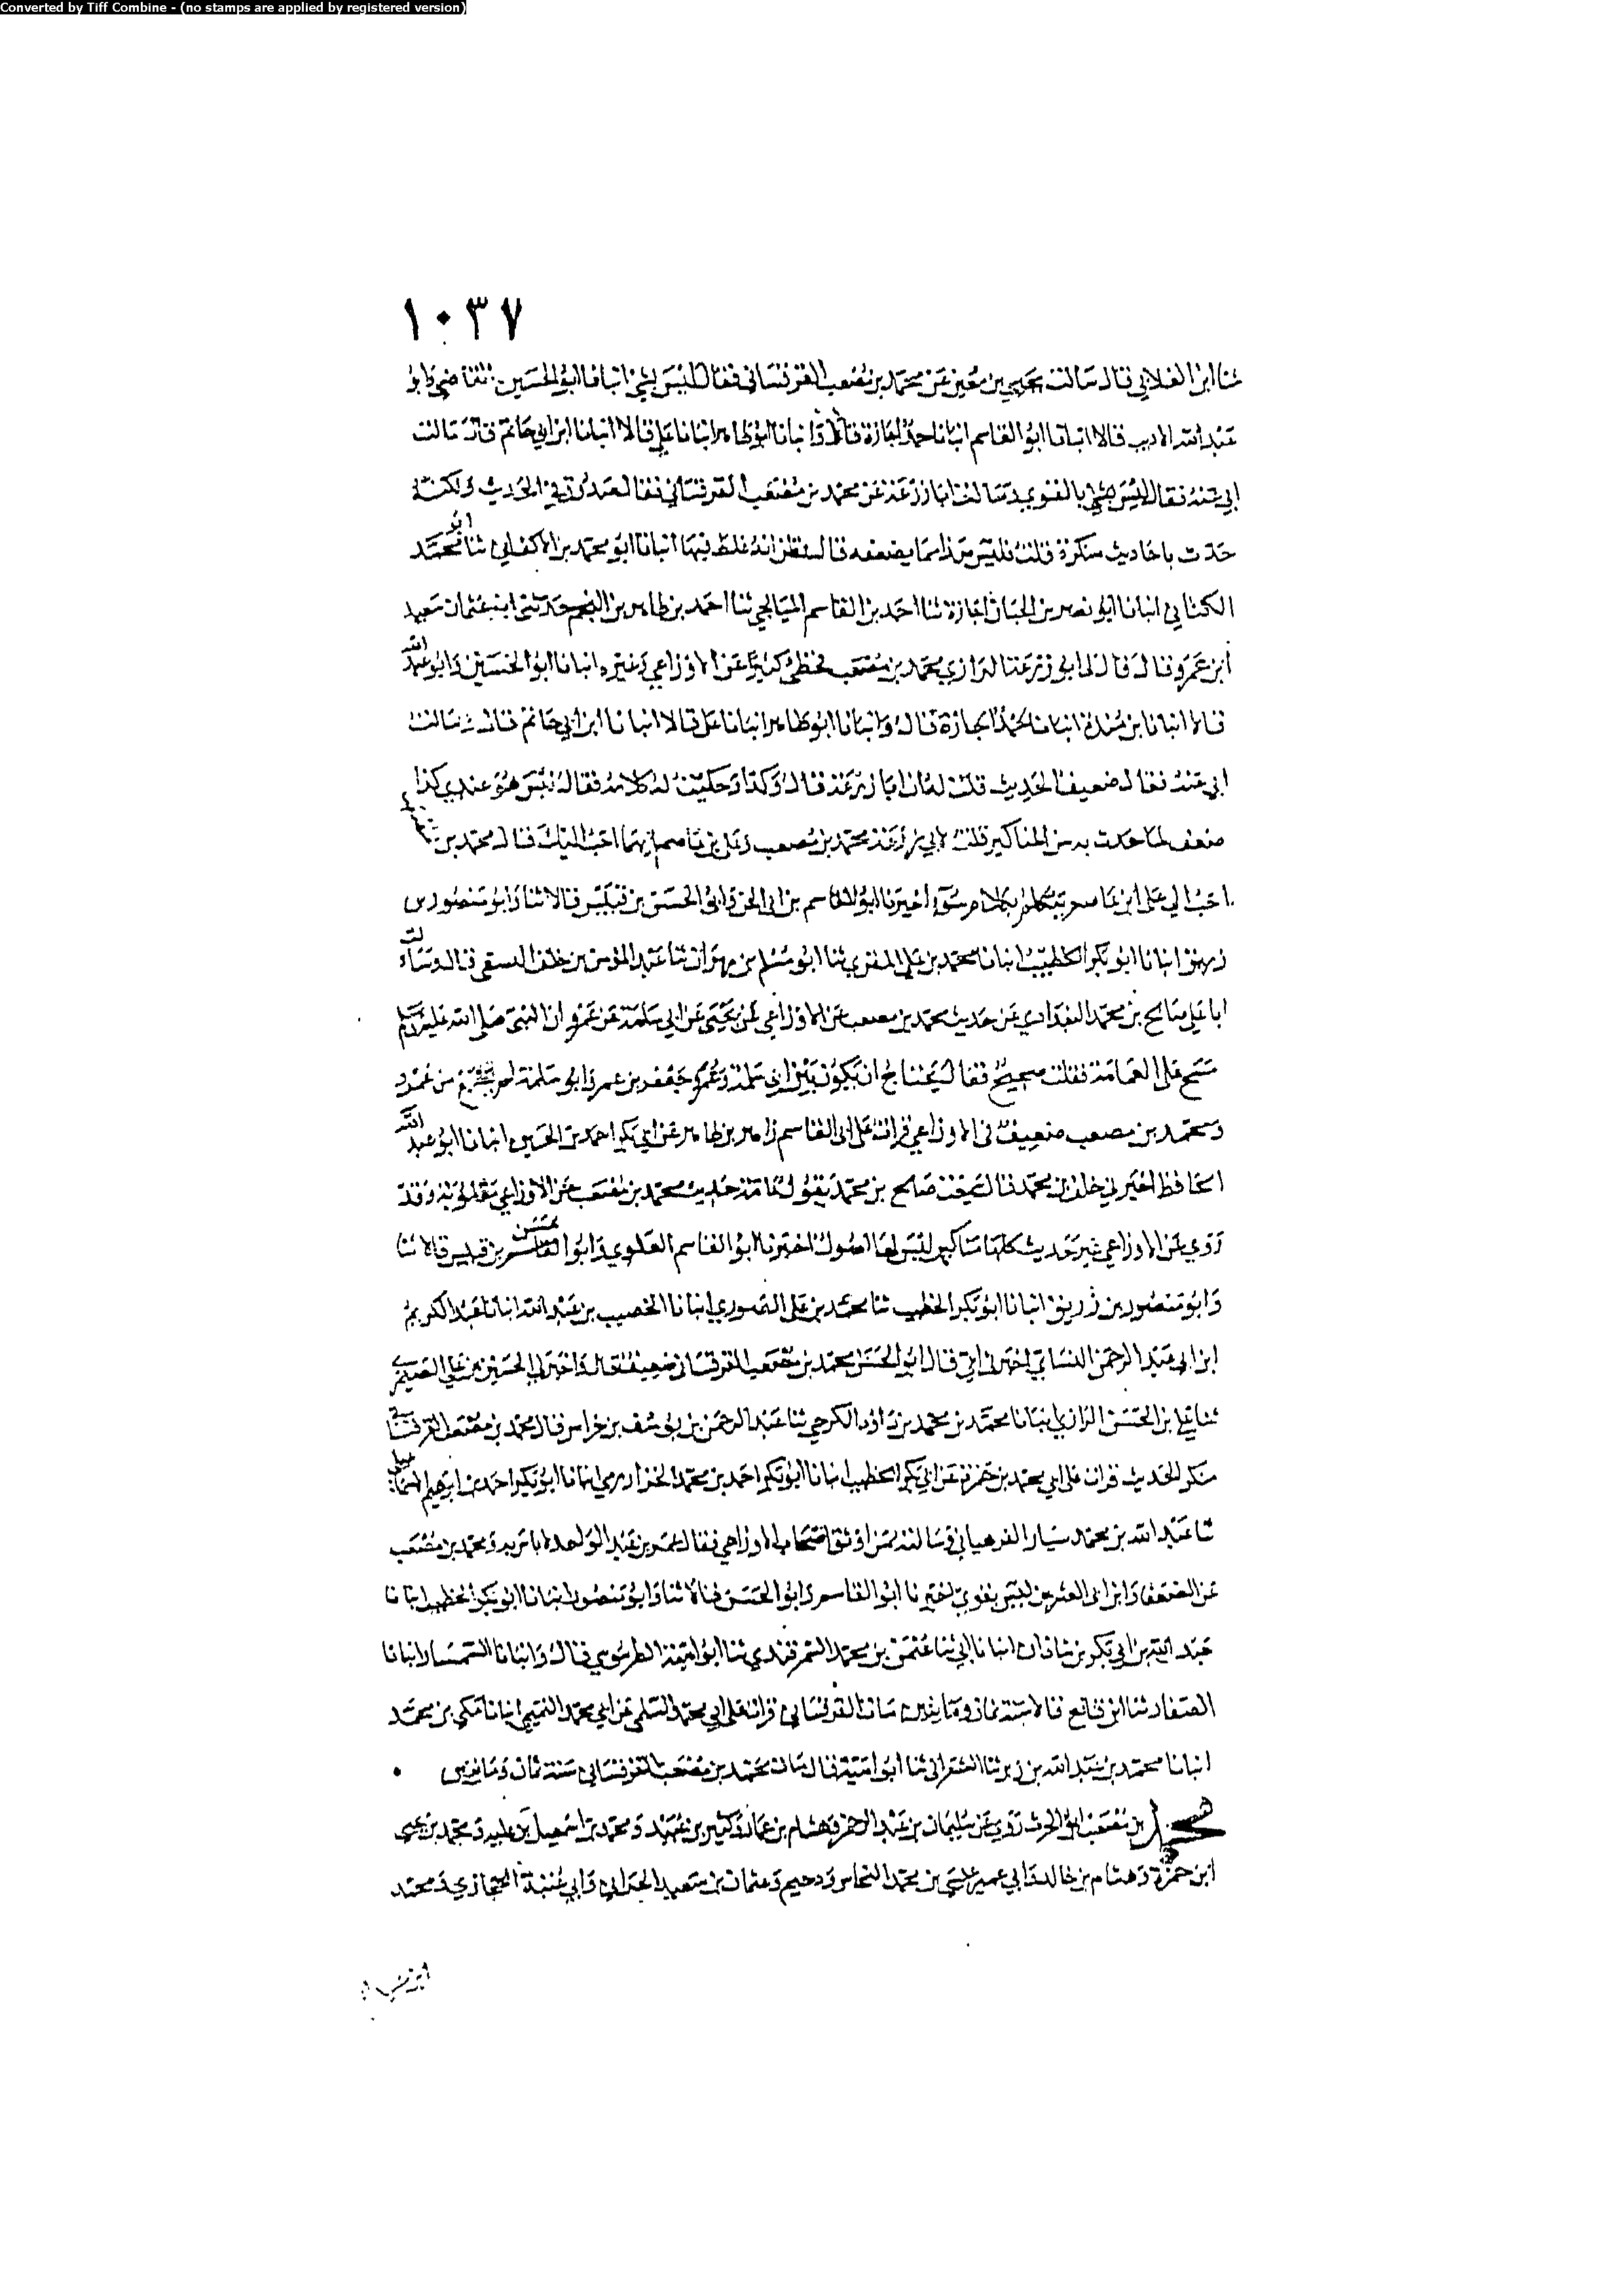 Converted by Tiff Combine - (no stamps are applied by registered version)
١٠٣٧
ثنا ابن الغلابي قال سالت يحيى بن معين عن محمد بن مصعب القرقساني فقال ليس بشي انبانا ابو الحسين القاضي وابو
عبد الله الاديب قالا انبانا ابو القاسم انبانا حمد اجازة قال وانبانا ابو طاهر انبانا علي قالا انبانا ابن ابي حاتم قال سالت
ابي عنه فقال ليس بالقوي وسالت ابا زرعة عن محمد بن مصعب القرقساني فقال صدوق في الحديث ولكنه
حدث باحاديث منكرة قلت فليس هذا مما يضعفه قال نظن انه غلط فيها انبانا ابو محمد بن الاكفاني ثنا ابو محمد
الكتاني انبانا ابو نصر بن الجبان اجازة ثنا احمد بن القاسم الميانجي ثنا احمد بن طاهر بن النجم حدثني ابو عثمان سعيد
ابن عمرو قال قال لي ابو زرعة الرازي محمد بن مصعب يخطئ كثيرا عن الاوزاعي وغيره انبانا ابو الحسين وابو عبد الله
قالا انبانا ابن مندة انبانا حمد اجازة قال وانبانا ابو طاهر انبانا علي قالا انبانا ابن ابي حاتم قال سالت
ابي عنه فقال ضعيف الحديث قلت له ان ابا زرعة قال كذا وحكيت له كلامه فقال ليس هو عندي كذا
ضعف لما حدث بهذه المناكير قلت لابي زرعة محمد بن مصعب وعلي بن عاصم ايهما احب اليك قال محمد بن
احب الي علي ابن عاصم يتكلم بكلام سوء اخبرنا ابو القاسم بن ابي الجن وابو الحسن بن قبيس قالا ثنا وابو منصور بن
زريق انبانا ابو بكر الخطيب انبانا محمد بن علي المقري ثنا ابو مسلم بن مهران ثنا عبد المؤمن بن خلف النسفي قال وسالت
ابا علي صالح بن محمد البغدادي عن حديث محمد بن مصعب عن الاوزاعي عن يحيى عن ابي سلمة عن عمرو ان النبي صلى الله عليه وسلم
مسح على العمامة فقلت صحيح فقال يحتاج ان يكون بين ابي سلمة وعمرو جعفر بن عمرو وابو سلمة لم يسمع من عمرو
ومحمد بن مصعب ضعيف في الاوزاعي قرات على ابي القاسم زاهر بن طاهر عن ابي بكر احمد بن الحسين انبانا ابو عبد الله
الحافظ اخبرني خلف بن محمد قال سمعت صالح بن محمد يقول عامة حديث محمد بن مصعب عن الاوزاعي مقلوبة وقد
روي عن الاوزاعي غير حديث كلها مناكير ليس لها اصول اخبرنا ابو القاسم العلوي وابو الحسن بن قبيس قالا ثنا
وابو منصور بن زريق انبانا ابو بكر الخطيب ثنا محمد بن علي الصوري انبانا الخصيب بن عبد الله انبانا عبد الكريم
ابن ابي عبد الرحمن النسائي اخبرني ابي قال ابو الحسن محمد بن مصعب القرقساني ضعيف قال واخبرني الحسين بن علي الصيمري
ثنا علي بن الحسن الرازي انبانا محمد بن محمد بن داود الكرجي ثنا عبد الرحمن بن يوسف بن خراش قال محمد بن مصعب القرقساني
منكر الحديث قرات على ابي محمد بن حمزة عن ابي بكر الخطيب انبانا ابو بكر احمد بن محمد انبانا ابو بكر احمد بن ابراهيم الاسماعيلي
ثنا عبد الله بن محمد سيار الفرهياني وسالته من اوثق اصحاب الاوزاعي فقال عمر بن عبد الواحد ومحمد بن مصعب
من الضعفا وابن ابي العشرين ليس بقوي اخبرنا ابو القاسم وابو الحسن قالا ثنا وابو منصور انبانا ابو بكر الخطيب انبانا
عبد الله بن ابي بكر بن شاذان انبانا ابي ثنا عثمن بن محمد السمرقندي ثنا ابو امية الطرسوسي قال وانبانا السمسار انبانا
الصفار ثنا ابن قانع قالا سنة ثمان ومايتين مات القرقساني قرات على ابي محمد السلمي عن ابي محمد التميمي انبانا مكي بن محمد
انبانا محمد بن عبد الله بن زبر ثنا الشعراني ثنا ابو امية قال مات محمد بن مصعب القرقساني سنة ثمان ومايتين
محمد بن مصعب ابو الحرث روي عن سليمان بن عبد الرحمن وهشام بن عمار وكثير بن عبيد ومحمد بن اسمعيل بن علية ومحمد بن يحيى
ابن حمزة وهشام بن خالد وابي عمير عيسى بن محمد النحاس ودحيم وعثمان بن سعيد الحراني وابي عتبة الحجازي ومحمد